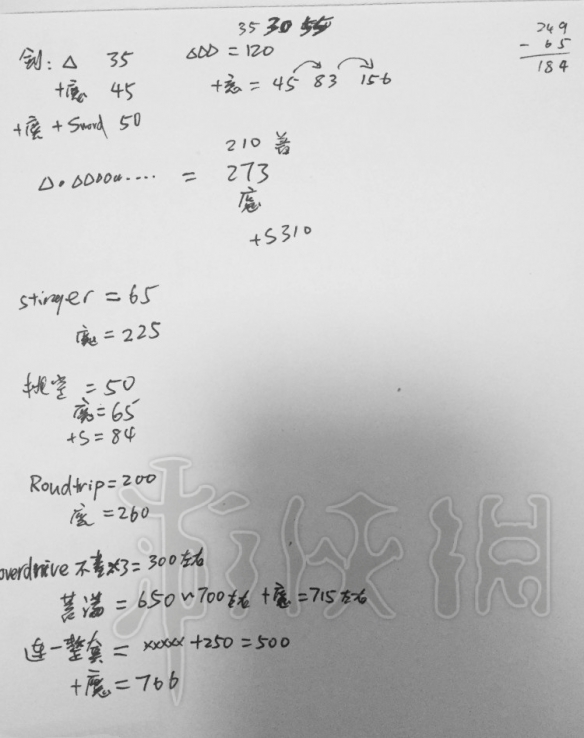 35 30 55
249
- 65
184
剑: △ 35
△△△ = 120
+魔 45
+魔 = 45 83 156
+魔 + Sword 50
210 普
△. △△△△△.... = 273
魔
+S310
stinger = 65
魔 = 225
挑空 = 50
魔 = 65
+S = 84
Roudtrip = 200
魔 = 260
overdrive 不蓄x3 = 300左右
蓄满 = 650~700左右 +魔 = 715左右
连一整套 = xxxxx + 250 = 500
+魔 = 766